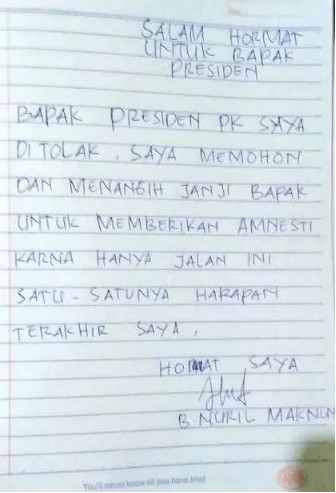 SALAM HORMAT
UNTUK BAPAK
PRESIDEN
BAPAK PRESIDEN PK SAYA
DITOLAK. SAYA MEMOHON
DAN MENANGIH JANJI BAPAK
UNTUK MEMBERIKAN AMNESTI
KARNA HANYA JALAN INI
SATU-SATUNYA HARAPAN
TERAKHIR SAYA.
HORMAT SAYA
B. NURIL MAKNUN
You'll never know till you have tried